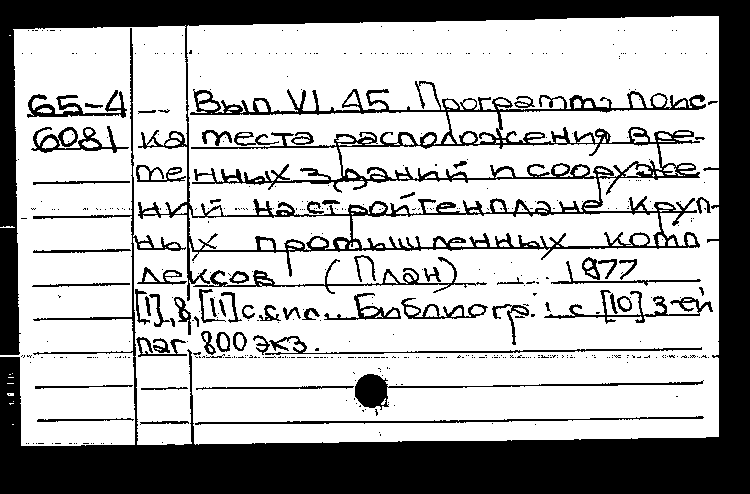 65-4 Вып VI.45. Программа поис-
6081 ка места расположения вре-
менных зданий и сооруже-
ний на стройгенплане круп-
ных промышленных комп-
лексов (План) 1977
[1], 8, [11] с.с ил.. Библиогр.: с. [10] 3-ей
паг. 800 экз.